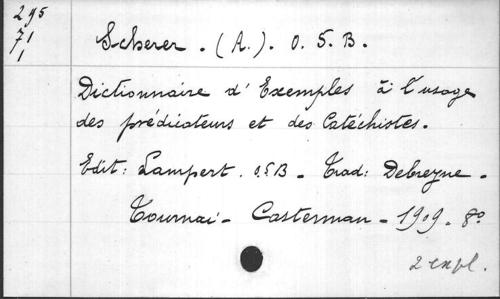 295
71
1
Scherer. (A.). O. S. B.
Dictionnaire d'Exemples à l'usage
des prédicateurs et des Catéchistes.
Edit: Lampert. O.S.B - Trad: Debreyne -
Tournai - Casterman - 1909. 8º
2 expl.